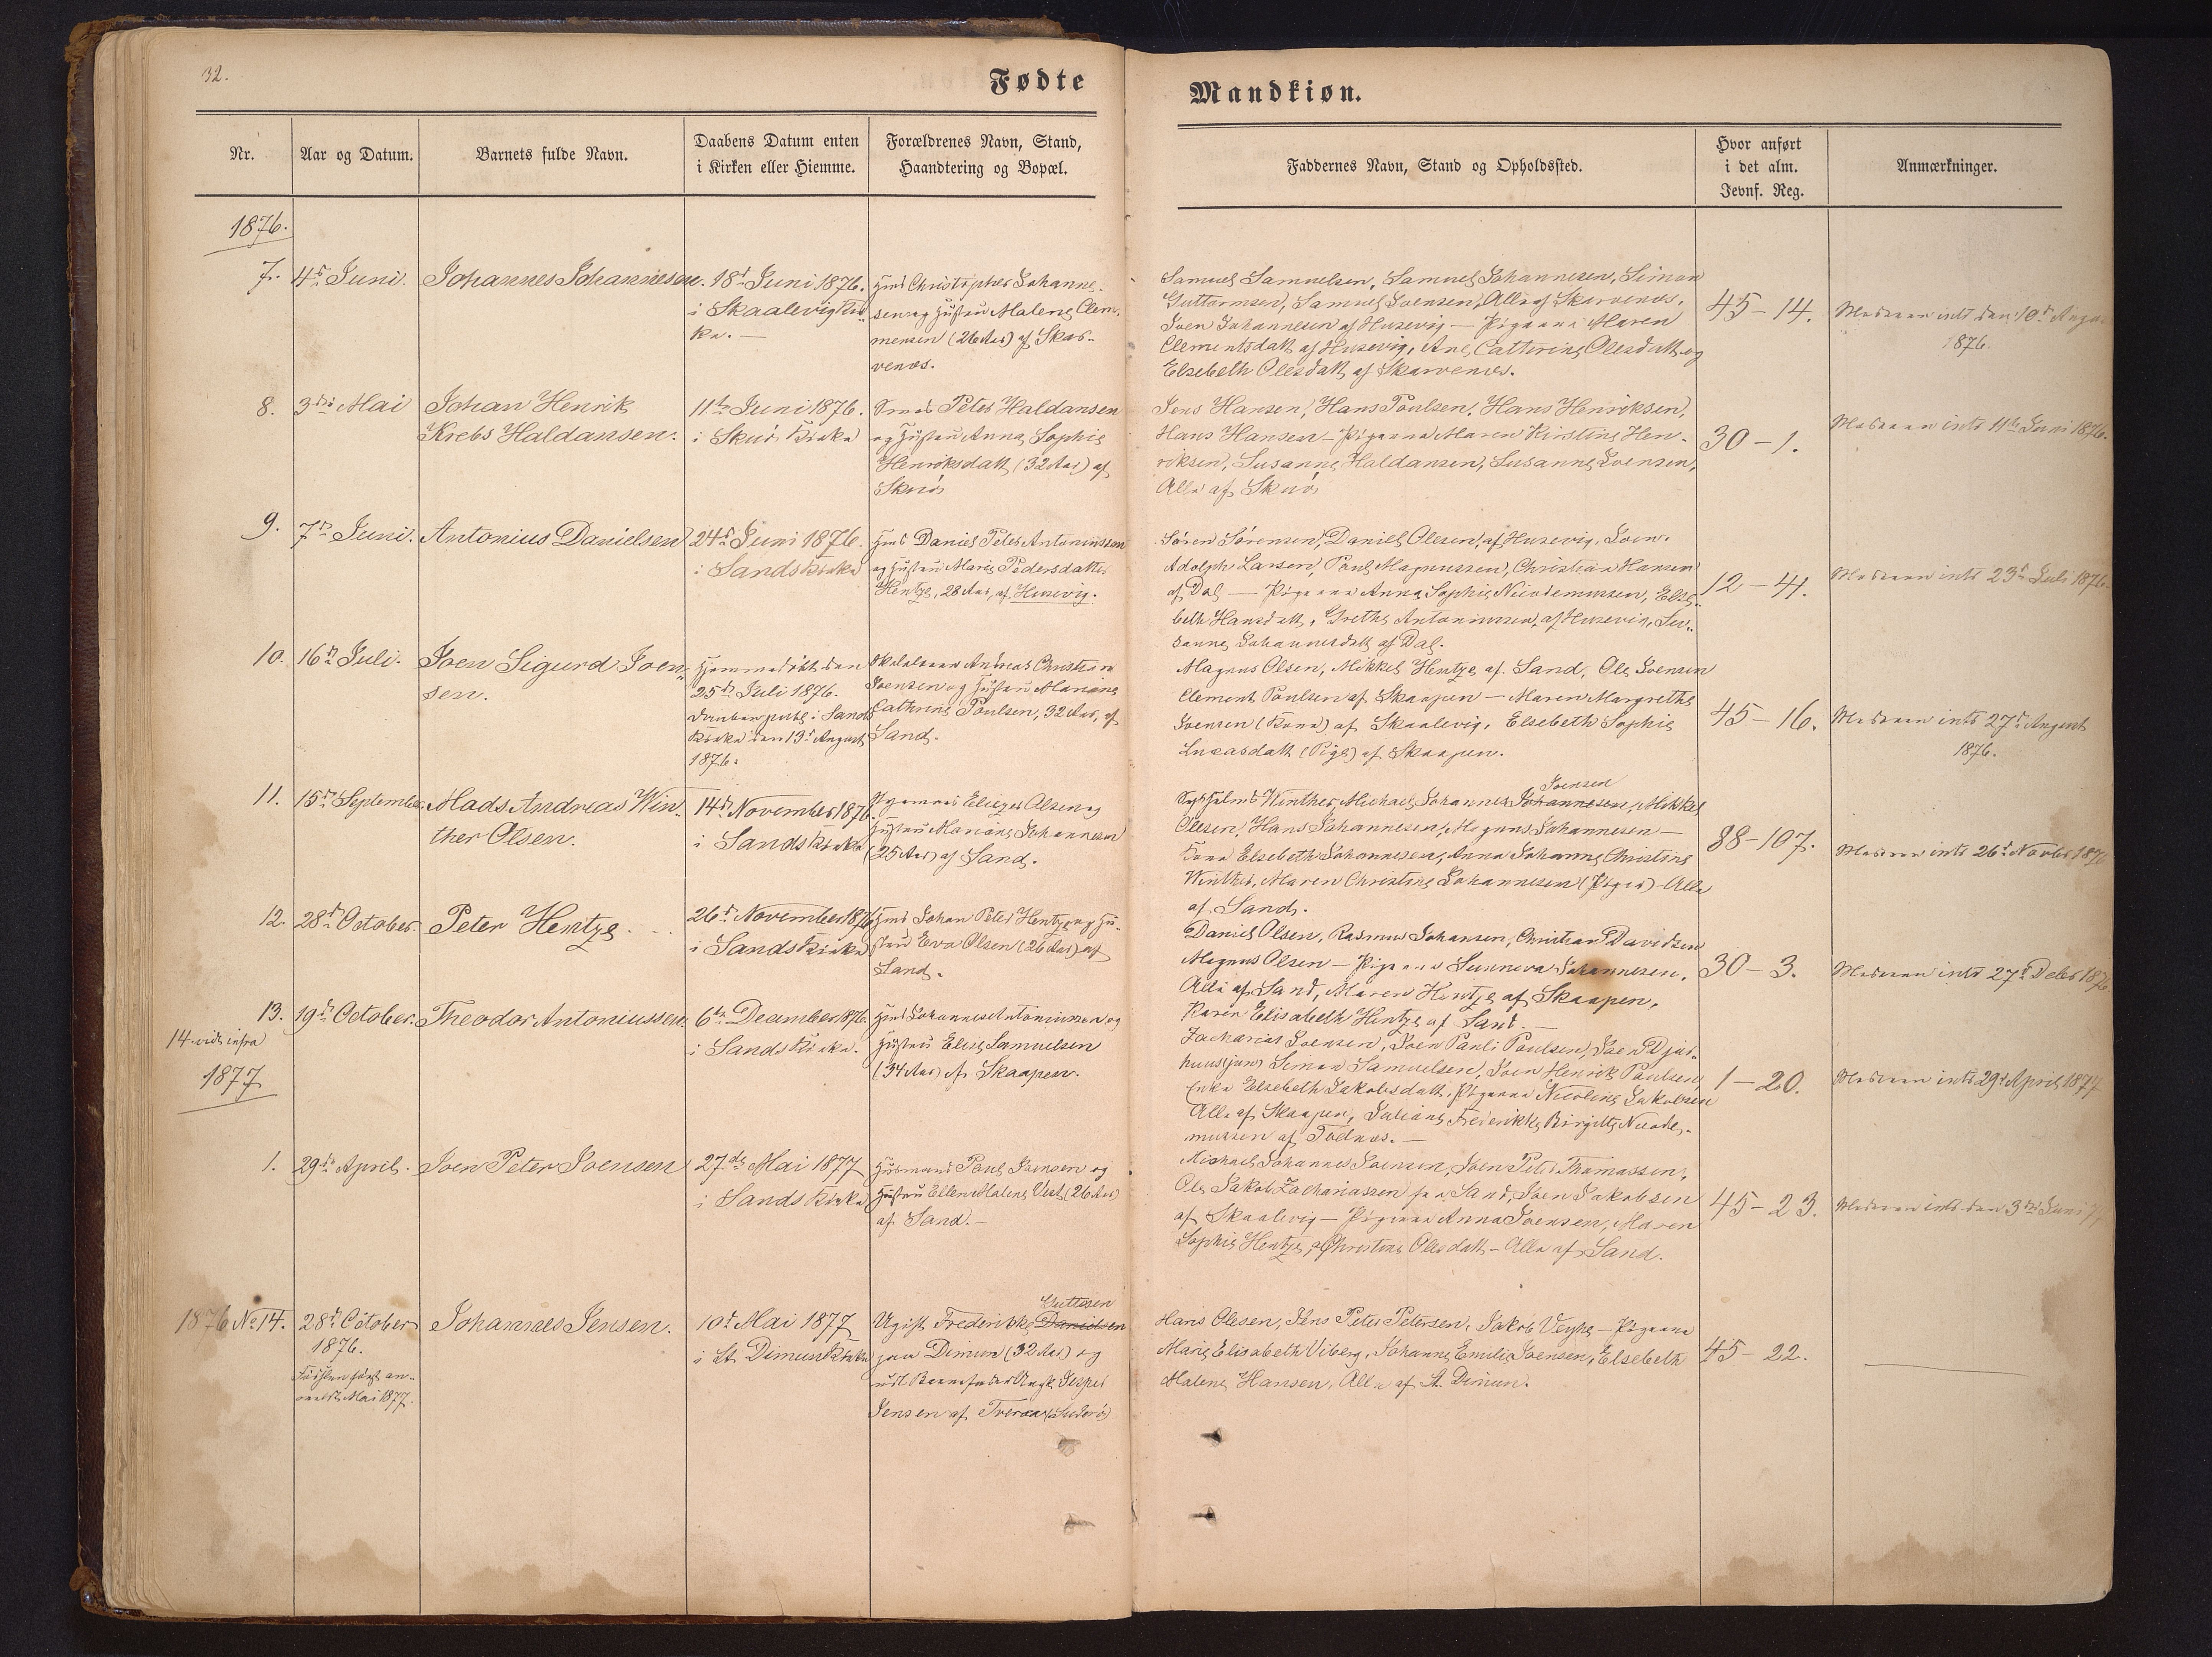 32.
Fødte
Mandkiøn.
Nr.
Aar og Datum.
Barnets fulde Navn.
Daabens Datum enten
i Kirken eller Hiemme.
Forældrenes Navn, Stand,
Haandtering og Bopæl.
Faddernes Navn, Stand og Opholdssted.
Hvor anført
i det alm.
Jevnf. Reg.
Anmærkninger.
1876.
7. 4de Juni. Johannes Johannesen.
18de Juni 1876.
i Skaalevig Kir-
ke. —
Christopher Johanne-
sen og Hustru Malene Clem-
mensen (26 Aar) af Skar-
venæs.
Samuel Samuelsen, Samuel Johannesen, Simon
Guttormsen, Samuel Joensen, Alle af Skarvenæs,
Joen Johannesen af Husevig — Pigerne Maren
Clementsdatt. af Husevig, Ane Cathrine Olesdatt. og
Elsebeth Olesdatt. af Skarvenæs.
45–14.
Moderen intr. den 10de August
1876.
8. 3die Mai
Johan Henrik
Krebs Haldansen.
11te Juni 1876.
i Skuø Kirke
Peter Haldansen
og Hustru Anna Sophie
Henriksdatt. (32 Aar) af
Skuø
Jens Hansen, Hans Poulsen, Hans Henriksen,
Hans Hansen – Pigerne Maren Kirstine Hen-
riksen, Susanne Haldansen, Susanne Joensen,
Alle af Skuø
30–1.
Moderen intr. 11te Juni 1876.
9. 7de Juni. Antonius Danielsen
24de Juni 1876.
i Sands Kirke
Daniel Peter Antoniussen
og Hustru Marie Pedersdatter
Hentze, 28 Aar, af Husevig.
Søren Sørensen, Daniel Olesen, af Husevig, Joen
Adolph Larsen, Poul Magnussen, Christian Hansen
af Dal — Pigerne Anna Sophie Nicodemussen, Else-
beth Hansdatt., Grethe Antoniussen, af Husevig, Su-
sanne Johannesdatt. af Dal.
12–4.
Moderen intr. 23de Juli 1876.
10. 16de Juli.
Joen Sigurd Joen-
sen.
Hjemmedøbt den
25de Juli 1876.
i Sands
Kirke den 13de August
1876.
Andreas Christian
Joensen og Hustru Mariane
Cathrine Poulsen, 32 Aar, af
Sand.
Magnus Olsen, Mikkel Hentze af Sand, Ole Joensen
Clement Poulsen af Skaapen — Maren Margrethe
Joensen (Kone) af Skaalevig, Elsebeth Sophie
Lucasdatt (Pige) af Skaapen.
45–16.
Moderen intr. 27de August
1876.
11. 15de September.
Mads Andreas Win-
ther Olsen.
14de November 1876
i Sands Kirke
Eliezer Olsen og
Hustru Mariane Johannesen
(25 Aar) af Sand.
Joensen
Winther, Michael Johannes Johannesen, Mikkel
Olesen, Hans Johannesen, Magnus Johannesen —
Kone Elsebeth Johannesen, Anna Johanne Christine
Winther, Maren Christine Johannesen (Piger) – Alle
af Sand.
88–107.
Moderen intr. 26de Novbr 1876
12. 28de October.
Peter Hentze.
26de November 1876
i Sands Kirke
Johan Peter Hentze og Hu-
stru Eva Olsen (26 Aar) af
Sand.
Daniel Olsen, Rasmus Johansen, Christian Davidsen
Magnus Olsen — Pigerne Sunneva Johannesen,
Alle af Sand, Maren Hentze af Skaapen,
Karen Elisabeth Hentze af Sand. —
30–3.
Moderen intr. 27de Decbr 1876.
13. 19de October. Theodor Antoniussen.
6te December 1876.
i Sands Kirke.
Johannes Antoniussen og
Hustru Elise Samuelsen
(34 Aar) af Skaapen.
Zacharias Joensen, Joen Pauli Poulsen, Joen Djur-
huus (jun) Simon Samuelsen, Joen Henrik Poulsen,
Enke Elsebeth Jakobsdatt., Pigerne Nicoline Jakobsen
Alle af Skaapen, Juliane Frederikke Birgitte Nicode-
mussen af Todnæs. —
1–20.
Moderen intr. 29de April 1877
14 vide infra
1877
1. 29de April. Joen Peter Joensen
27de Mai 1877
i Sands Kirke
Husmand Poul Joensen og
Hustru Ellen Malene Vest (26 Aar)
af Sand. —
Michael Johannes Joensen, Joen Peter Thomassen,
Ole Jakob Zachariassen fra Sand, Joen Jakobsen
af Skaalevig — Pigerne Anna Joensen, Maren
Sophie Hentze, Christine Olesdatt – Alle af Sand.
45–23.
Moderen intr. den 3die Juni 77
1876 No 14. 28de October
1876.
Mai 1877.
Johannes Jensen.
10de Mai 1877
i St. Dimun Kirke
Guttesen
Ugift Frederikke Danielsen
paa Dimun (32 Aar) og
udl. Barnefader Ungk. Jesper
Jensen af Tveraa (Suderø)
Hans Olesen, Jens Peter Petersen, Jakob Veyhe — Pigerne
Marie Elisabeth Viberg, Johanne Emilie Joensen, Elsebeth
Malene Hansen, Alle af St. Dimun.
45–22.